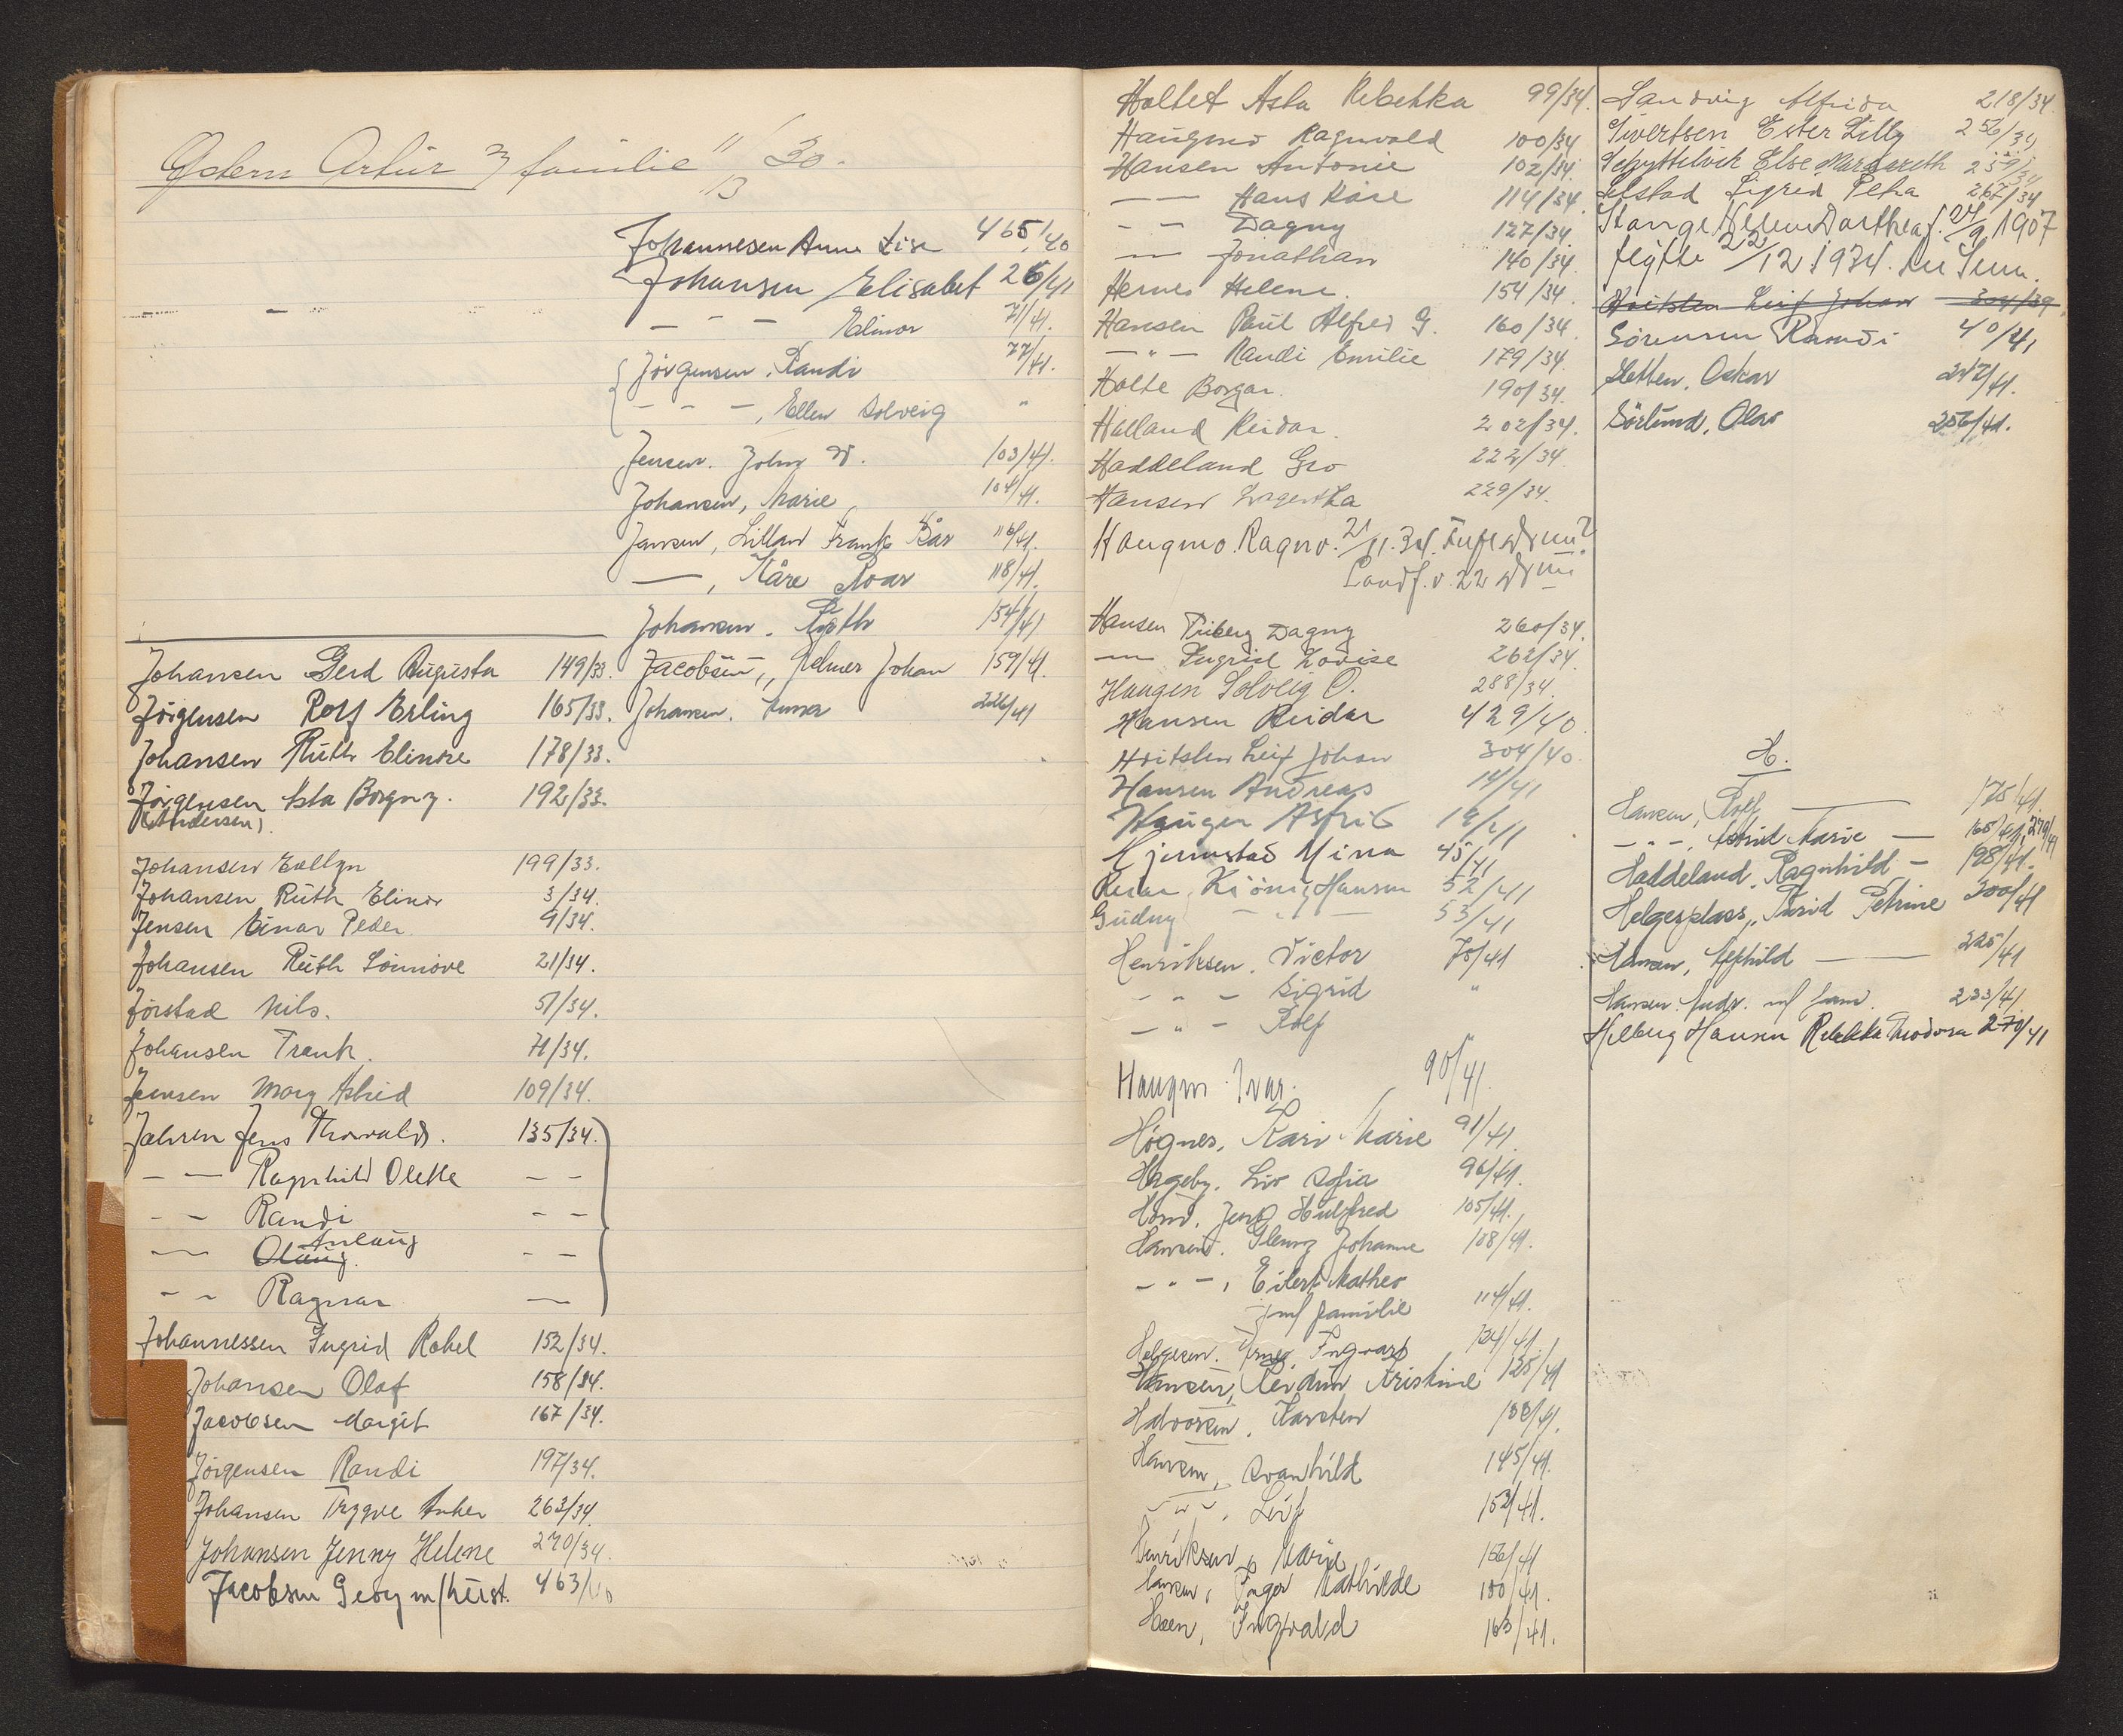 Artur familie 11/13 30.
Johannesen Anne Lise 465/40
Johansen Elisabet 26/41
— - — Elinor 71/41.
Jörgensen, Randi 77/41.
— - —, Ellen Solveig "
Jensen. John W. 103/41.
Johansen, Marie 104/41.
Jansen, Frank 116/41.
—, Kåre Roar 118/41.
Johansen. 154/41
Johansen Gerd Augusta 149/33.
Jacobsen, Helmer Johan 159/41.
Jörgensen Rolf Erling 165/33.
Johansen. Anna 226/41
Johansen Ruth Elinore 178/33.
Jörgensen Asta Borgny. 192/33.
(Andersen)
Johansen Evellyn 199/33.
Johansen Ruth Elinor 3/34.
Jensen Einar Peder 9/34.
Johansen Ruth Sönnöve 21/34.
Jörstad Nils. 51/34.
Johansen Frank. 71/34.
Jensen Mary Astrid 109/34.
Jahren Jens Thorvald. 135/34.
— — Ragnhild Olette - -
- - Randi - -
— Olaug Anlaug - -
- - Ragnar —
Johannessen Ingrid Rakel 152/34.
Johansen Olaf 158/34.
Jacobsen Margit 167/34.
Jörgensen Randi 197/34.
Johansen Trygve Anker 263/34
Johansen Jenny Helene 270/34.
Jacobsen Georg m/hust. 463/40
Holtet Asta Rebekka 99/34.
Haugmo Ragnvald 100/34
Hansen Antonie 102/34.
— — Hans Kåre 114/34.
- - Dagny 127/34.
— Jonathan 140/34.
Hernes Helene. 154/34.
Hansen Paul Alfred G. 160/34.
— " — Randi Emilie 179/34.
Holte Borgar. 190/34.
Halland Reidar. 202/34.
Haddeland Gro 222/34.
Hansen 229/34.
Haugmo. Ragnv. 21/11.34.
Landf. v. 22
Hansen Friberg Dagny 260/34.
— Ingrid Lovise 262/34.
Haugen Solveig O. 288/34.
Hansen Reidar 429/40.
Hvitsten Leif Johan 304/40.
Hansen Andreas 14/41
Haugen Astrid
Hjemstad Mina 45/41
Reidar König Hansen 52/41
Gudny — " — 53/41
Henriksen. Victor 70/41
- - - Sigrid "
— " - Rolf "
Haugen Ivar. 90/41.
Högnes, Kari Marie 91/41.
Hageby. Liv Sofia 96/41.
105/41.
Hansen. Johanne 108/41.
— " —, Eilert Matheo
m/ familie 114/41.
Helgesen. Ingvart 124/41.
Hansen, Kristine 125/41
Halvorsen. Karsten 138/41.
Hansen, Svanhild 145/41.
— " —, Leif 152/41.
Henriksen, Marie 156/41
Hansen, Inger Mathilde 160/41.
Hoen, Ingvald 163/41.
Sandvig Alfrida 218/34
Sivertsen Ester Lilly 256/34
Skyttelvik Else Margareth 259/34
Selstad Sigrid Petra 267/34
Stange Helene Dorthea f. 24/9 1907
flytte 22/12 1934.
Hvitsten Leif Johan 304/39.
Sörensen Randi 40/41
Sletten, Oskar 247/41.
Sörlund, Olav 256/41.
H.
Hansen, Rolf — 175/41.
- " -, Astrid Marie — 165/41, 279/41
Haddeland, Ragnhild — 198/41.
Helgesplass, Turid Petrine 200/41
Hansen, — 225/41
Hansen. Andr. m/ fam. 233/41
Hilberg Hansen Rebekka Theodora 270/41